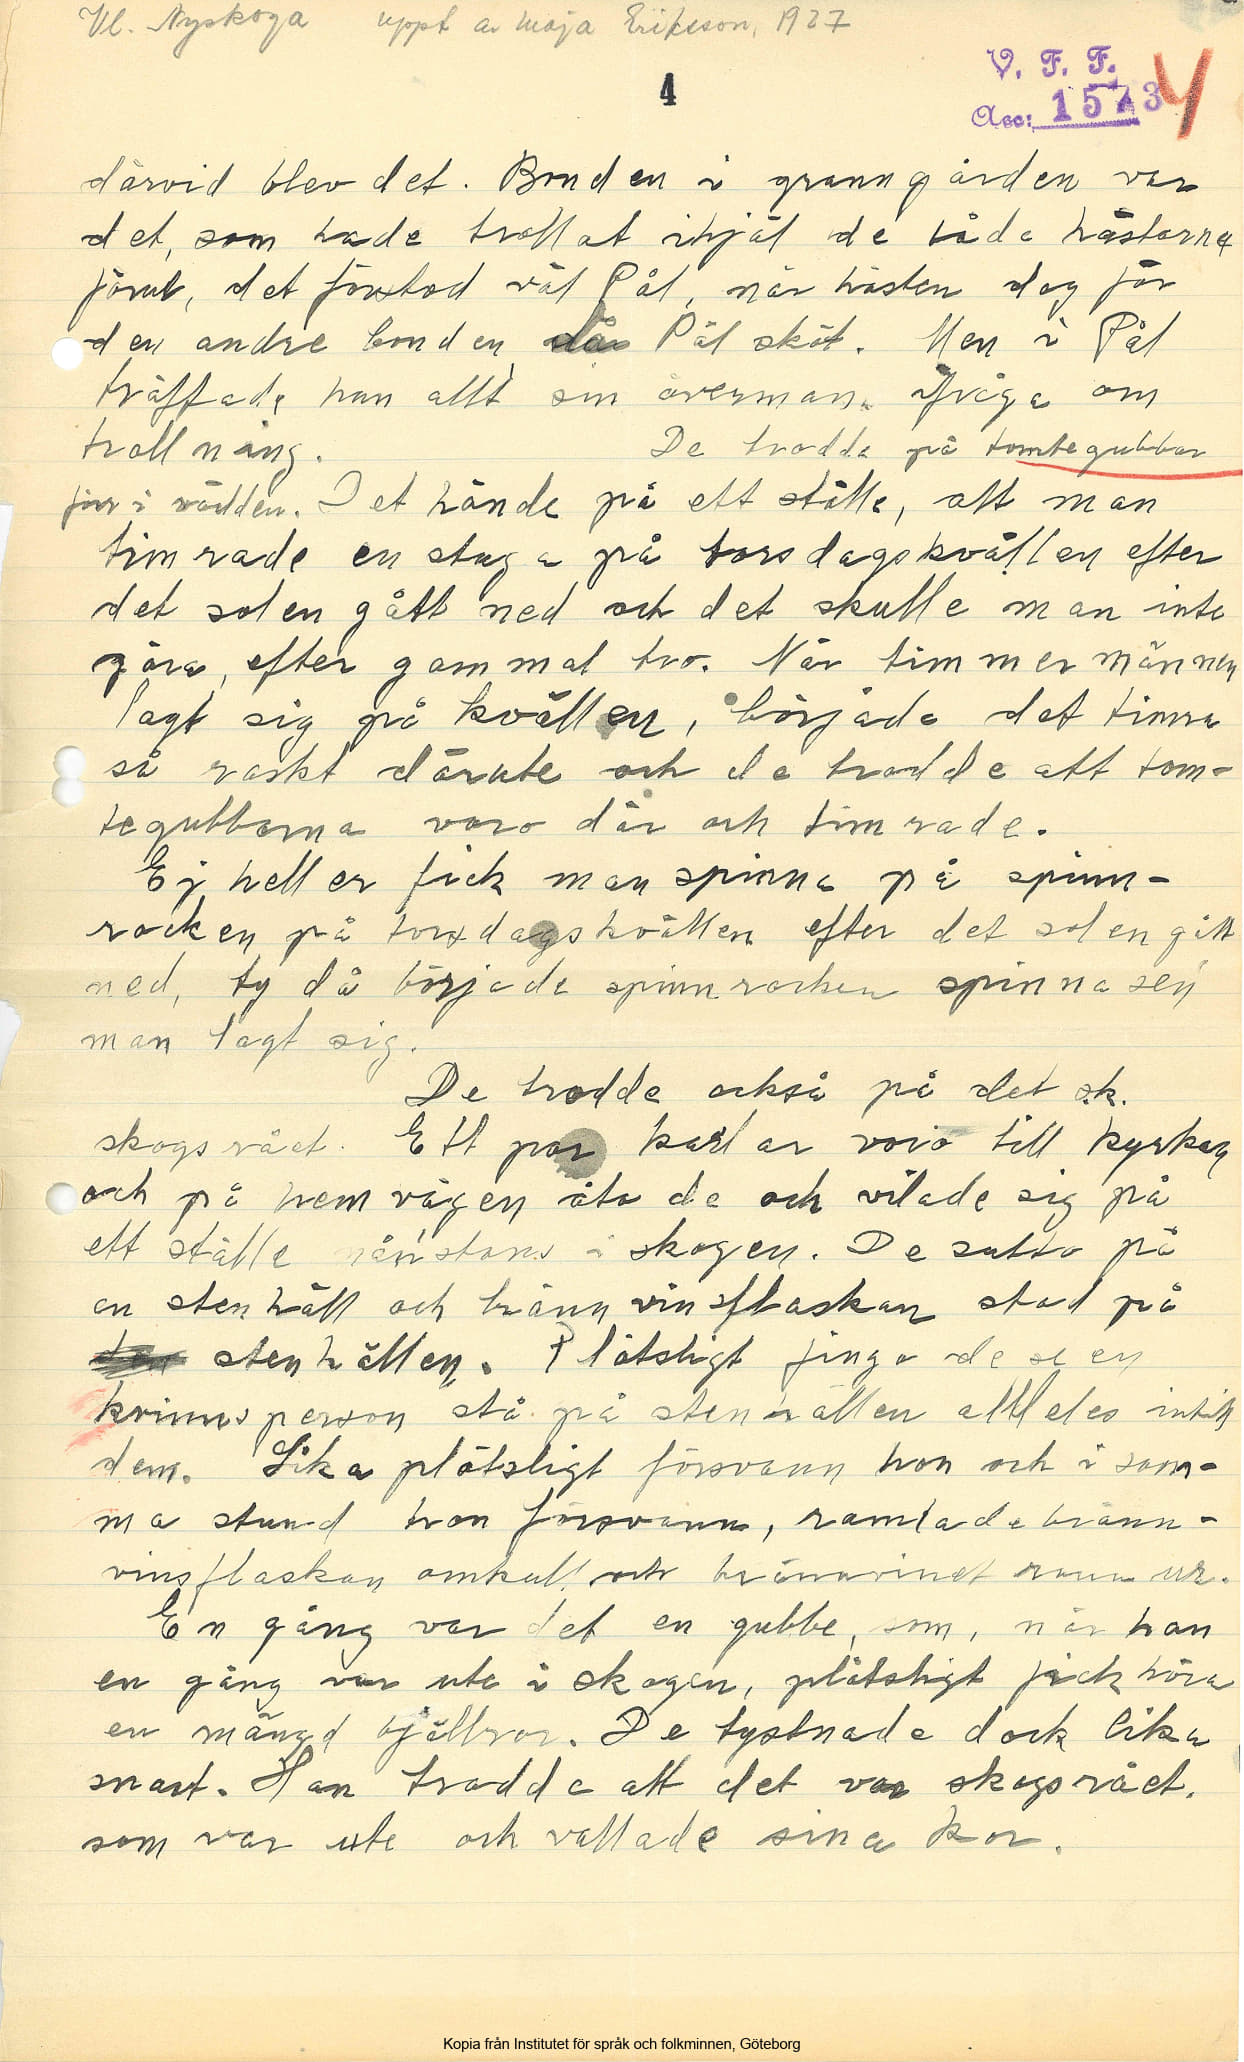 Vl. Nyskoga uppt av Maja Eriksson, 1927
4
V. F. F.
Acc: 1573
4
därvid blev det. Bonden i granngården var
det, som hade trollat ihjäl de båda hästarna
förut, det förstod väl Pål, när hästen dog för
den andre bonden, då Pål sköt. Men i Pål
träffade han allt sin överman, ifråga om
trollning. De trodde på tomtegubbar
förr i världen. Det hände på ett ställe, att man
timrade en stuga på torsdagskvällen efter
det solen gått ned och det skulle man inte
göra, efter gammal tro. När timmermännen
lagt sig på kvällen, började det timra
så raskt därute och de trodde att tom-
tegubbarna voro där och timrade.
Ej heller fick man spinna på spinn-
rocken på torsdagskvällen efter det solen gått
ned, ty då började spinnrocken spinna sen
man lagt sig.
De trodde också på det s.k.
skogsrået. Ett par karlar voro till kyrkan
och på hemvägen åto de och vilade sig på
ett ställe nånstans i skogen. De sutto på
en stenhäll och brännvinsflaskan stod på
stenhällen. Plötsligt fingo de se en
kvinnsperson stå på stenhällen alldeles intill
dem. Lika plötsligt försvann hon och i sam-
ma stund hon försvann, ramlade bränn-
vinsflaskan omkull och brännvinet rann ur.
En gång var det en gubbe, som, när han
en gång var ute i skogen, plötsligt fick höra
en mängd bjällror. De tystnade dock lika
snart. Han trodde att det var skogsrået,
som var ute och vallade sina kor.
Kopia från Institutet för språk och folkminnen, Göteborg